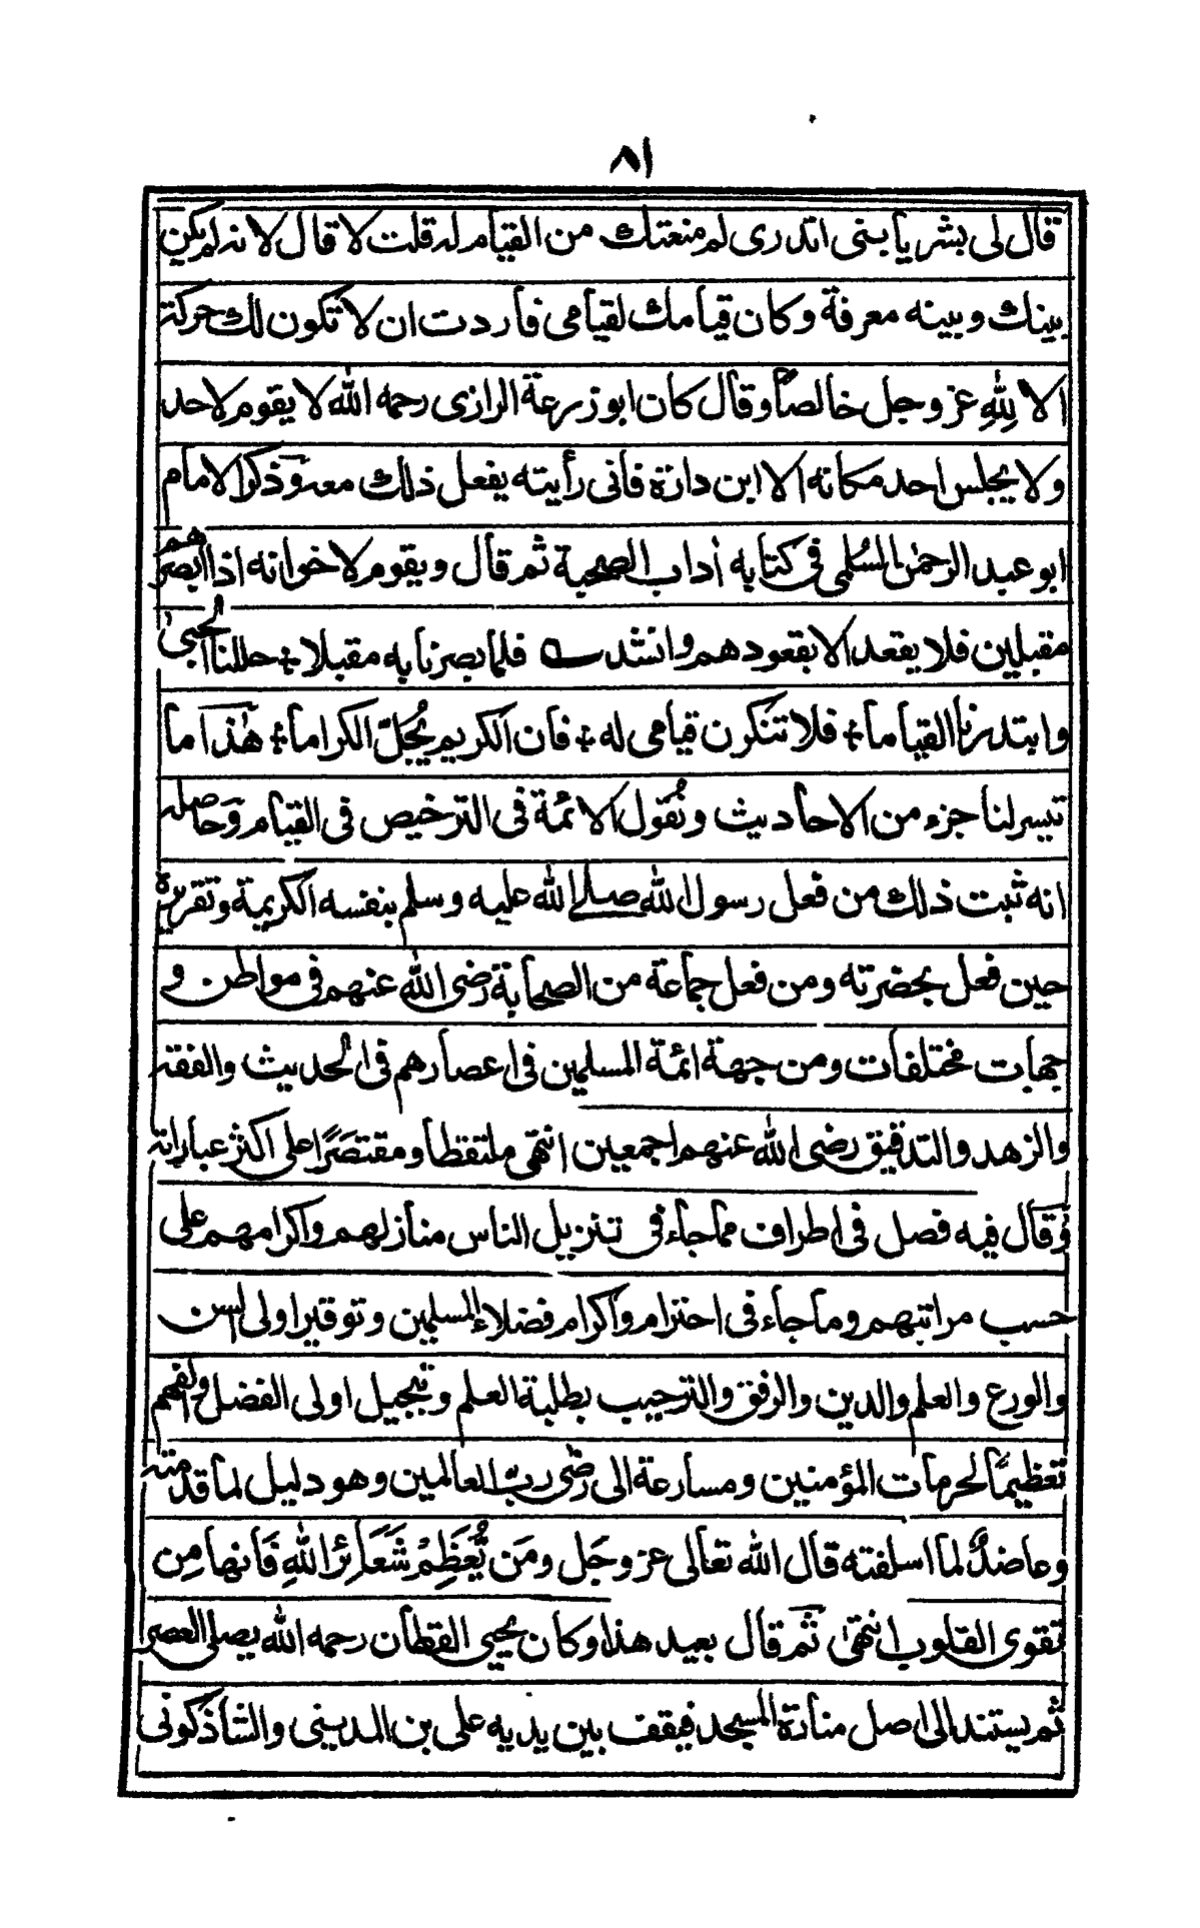 ٨١
قال لى بشر يا بنى اتدرى لم منعتك من القيام له قلت لا قال لانه لم يكن
بينك وبينه معرفة وكان قيامك لقيامى فاردت ان لا تكون لك حركة
الا لِلّٰهِ عز وجل خالصاً وقال كان ابو زرعة الرازى رحمه الله لا يقوم لاحد
ولا يجلس احد مكانه الا ابن دارة فانى رأيته يفعل ذلك معه وذكر الامام
ابو عبد الرحمٰن السُلمى فى كتابه اٰداب الصحبة ثم قال ويقوم لاخوانه اذا ابصرهم
مقبلين فلا يقعد الا بقعودهم وانشد ـ فلما بصرنا به مقبلا ÷ حللنا الحُبىٰ
وابتدرنا القياما ÷ فلا تنكرن قيامى له ÷ فان الكريم يُجلّ الكراما ÷ هٰذا ما
تيسر لنا جزء من الاحاديث ونُقول الائمة فى الترخيص فى القيام وَحاصله
انه ثبت ذلك من فعل رسول الله صلے الله عليه وسلم بنفسه الكريمة وتقريره
حين فعل بحضرته ومن فعل جماعة من الصحابة رضى الله عنهم فى مواطن و
جهات مختلفات ومن جهة ائمة المسلمين فى اعصارهم فى الحديث والفقه
والزهد والتدقيق رضى الله عنهم اجمعين انتهى ملتقطا ومقتصَرًا على اكثر عباراته
وَقال فيه فصل فى اطراف مما جاء فى تنزيل الناس منازلهم واكرامهم على
حسب مراتبهم وما جاء فى احترام واكرام فضلاء المسلمين وتوقير اولى السن
والورع والعلم والدين والرفق والترحيب بطلبة العلم وتبجيل اولى الفضل والفهم
تعظيمًا لحرمات المؤمنين ومسارعة الى رضى ربّ العالمين وهو دليل لما قدمته
وعاضدٌ لما اسلفته قال الله تعالى عز وجَل ومَن يُّعَظِمْ شَعَائرَ اللهِ فَانها مِن
تقوى القلوب انتهىٰ ثم قال بعيد هذا وكان يُحيى القطان رحمه الله يصلى العصر
ثم يستند الى اصل منارة المسجد فيقف بين يديه على بن المدينى والشاذكونى